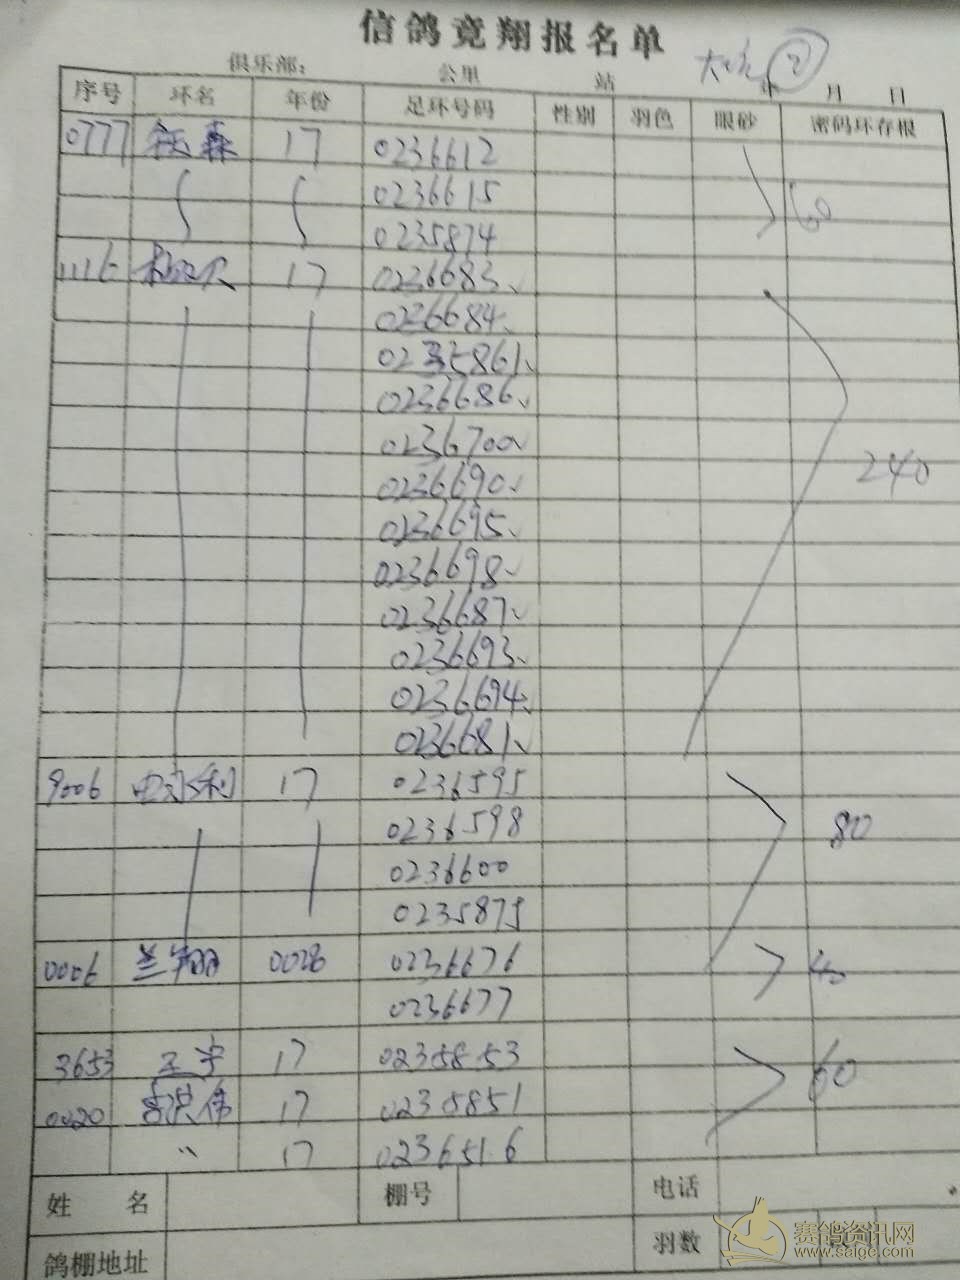 信鸽竞翔报名单
俱乐部: 公里 站 年 月 日
②
序号 环名 年份 足环号码 性别 羽色 眼砂 密码环存根
0777 森 17 0236612
0236615 60
0235874
1116 17 0236683
0236684
0235861
0236686
0236700
0236690 240
0236695
0236698
0236687
0236693
0236694
0236681
9006 利 17 0236595
0236598 80
0236600
0235875
0006 兰翔 0028 0236676 40
0236677
3653 王宇 17 0235853 60
0020 洪伟 17 0235851
〃 17 0236516
姓 名 棚号 电话
鸽棚地址 羽数
赛鸽资讯网
www.saige.com